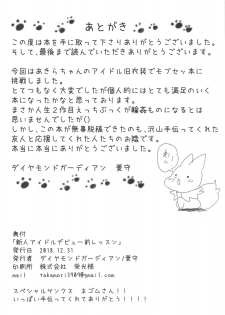 あとがき
この度は本を手に取って下さりありがとうございました。
そして、最後まで読んでいただきありがとうございます。
今回はあきらちゃんのアイドル旧衣装でモブセッ本に
挑戦しました。
とてつもなく大変でしたが個人的にはとても満足のいく
本になったかなと思っております。
まさか人生2作目えっちぶっくが輪姦ものになるとは
思いませんでしたが()
しかし、この本が無事脱稿できたのも、沢山手伝ってくれた
友人と応援してくれた人たちのお陰です。
本当に本当にありがとうございました。
わん!
ダイヤモンドガーディアン 菅守
奥付
「新人アイドルデビュー前レッスン」
発行日 2018.12.31
発行者 ダイヤモンドガーディアン/菅守
印刷所 株式会社 栄光様
mail takamori3909@gmail.com
スペシャルサンクス ネゴムさん!!
いっぱい手伝ってくれてありがとう!!!!